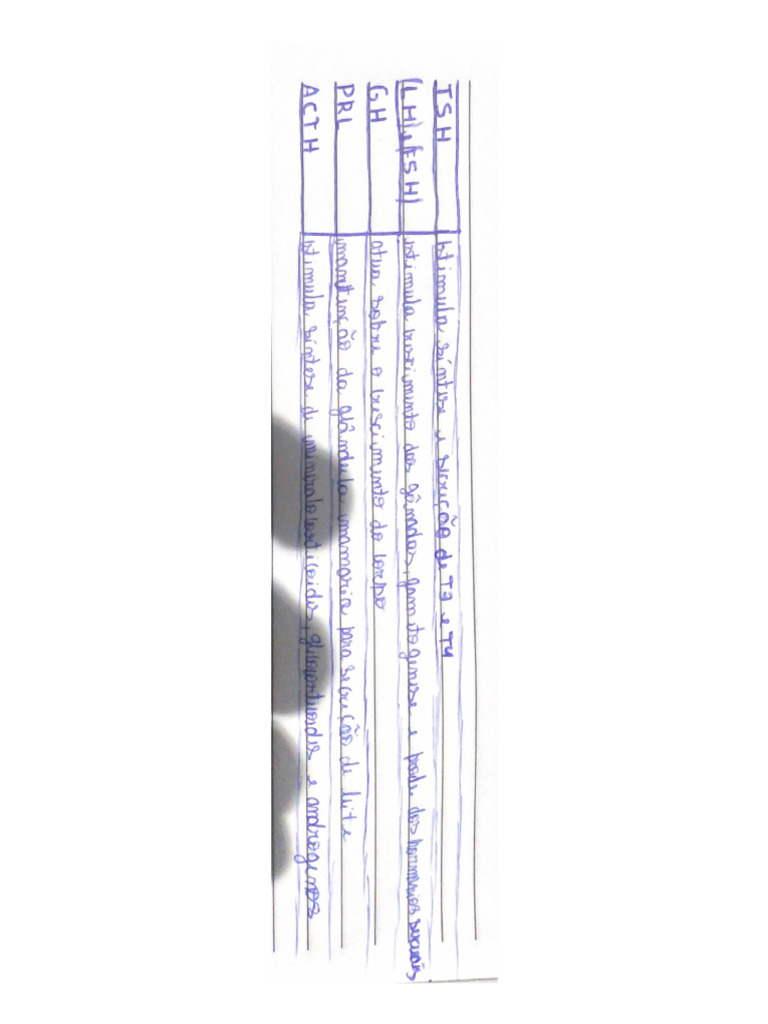 TSH estimula síntese e secreção de T3 e T4
(LH) e (FSH) estimula crescimento das gônadas, gametogenese e produ dos hormônios sexuais
GH atua sobre o crescimento do corpo
PRL manutenção da glândula mamaria para secreção de leite
ACTH estimula síntese de mineralocorticoides, glicocorticoides e androgenos